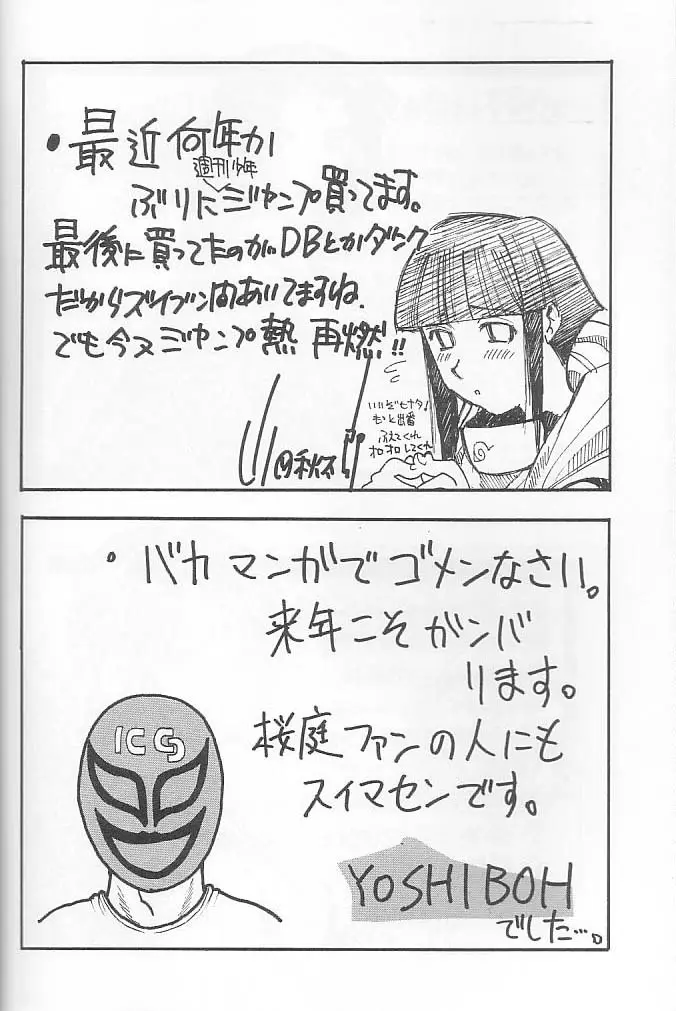 ・最近何年か
週刊少年
ぶりにジャンプ買ってます。
最後に買ってたのがDBとかダンク
だからズイブン間あいてますね.
でも今又ジャンプ熱 再燃!!
もっと出番
ふえてくれ
・バカマンガでゴメンなさい。
来年こそガンバ
ります。
桜庭ファンの人にも
スイマセンです。
YOSHIBOH
でした…。